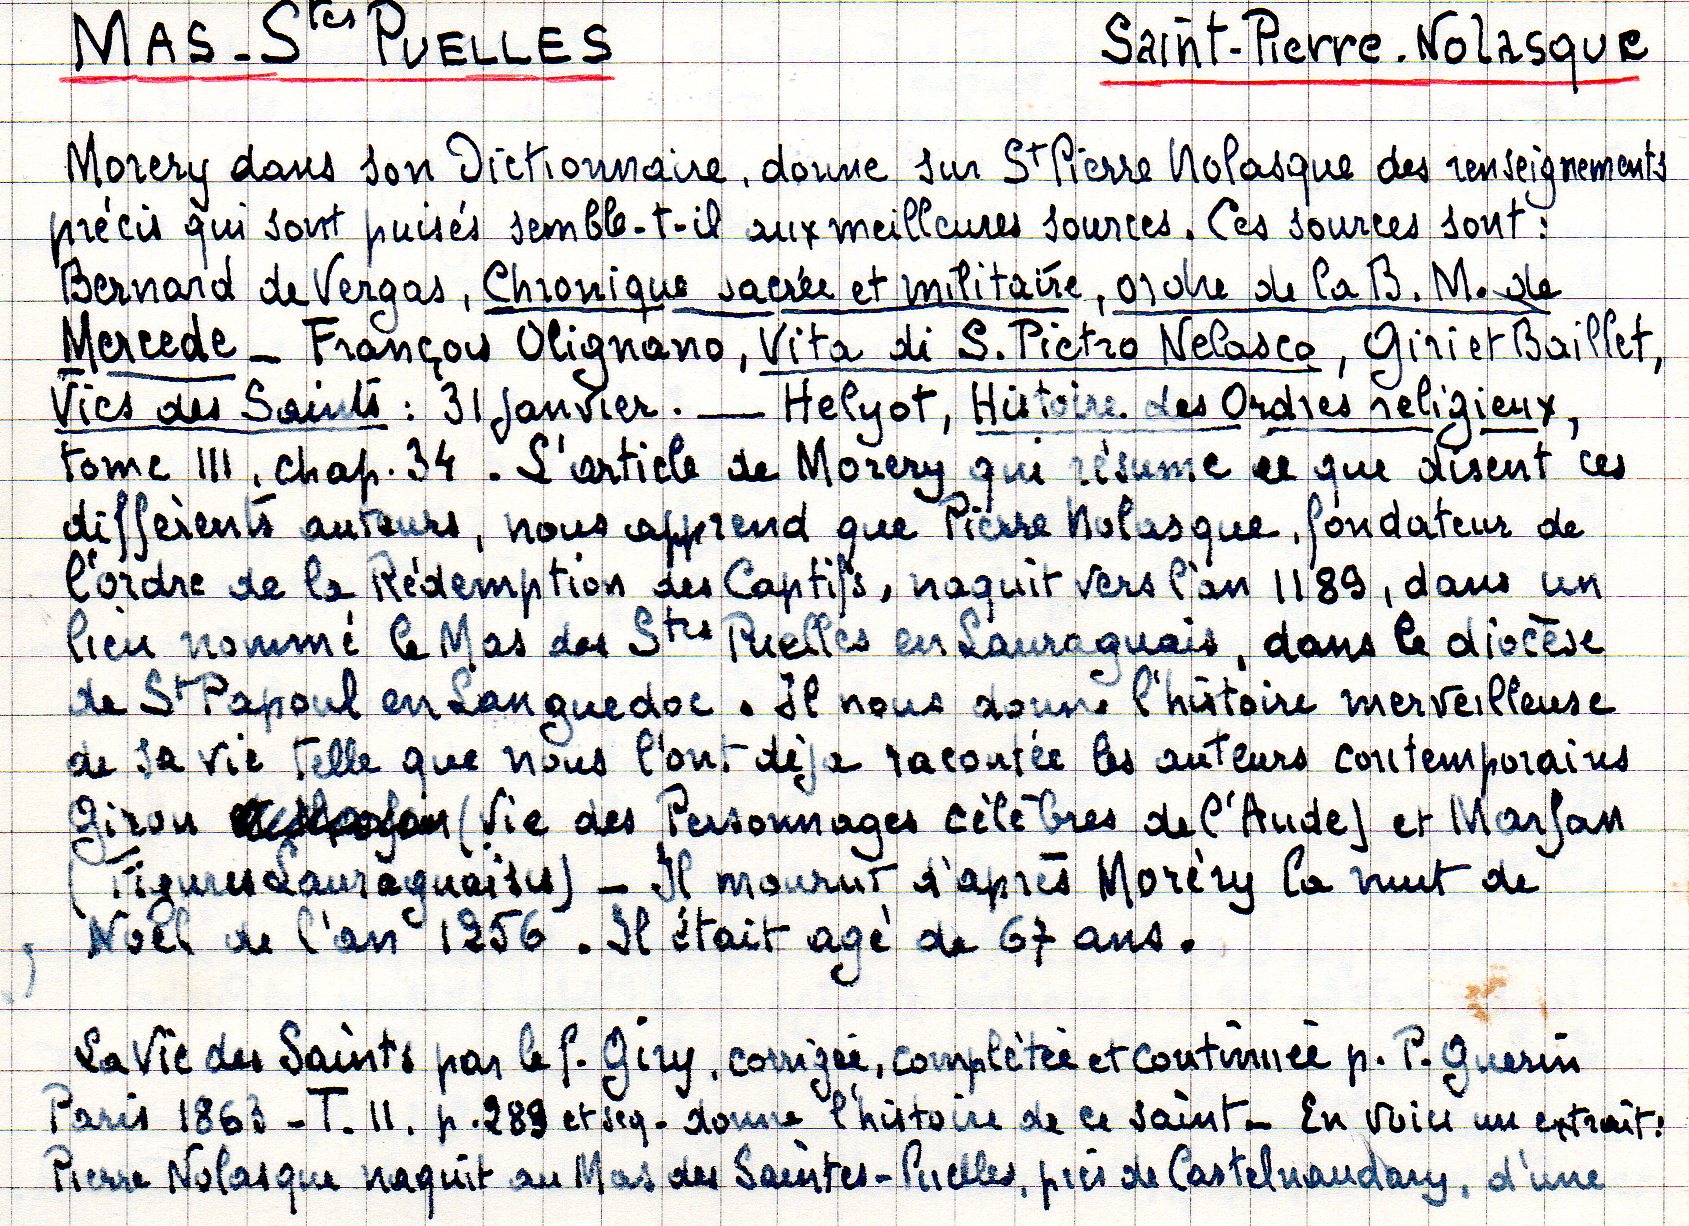 MAS-Stes PUELLES Saint-Pierre.Nolasque
Morery dans son Dictionnaire, donne sur St Pierre Nolasque des renseignements
précis qui sont puisés semble-t-il aux meilleures sources. Ces sources sont :
Bernard de Vergas, Chronique sacrée et militaire, ordre de la B. M. de
Mercede - François Olignano, Vita di S. Pietro Nelasco, Giri et Baillet,
Vies des Saints : 31 janvier. — Helyot, Histoire des Ordres religieux,
tome III, chap. 34. L'article de Morery qui résume ce que disent ces
différents auteurs, nous apprend que Pierre Nolasque, fondateur de
l'ordre de la Rédemption des Captifs, naquit vers l'an 1189, dans un
lieu nommé le Mas des Stes Puelles en Lauraguais, dans le diocèse
de St Papoul en Languedoc. Il nous donne l'histoire merveilleuse
de sa vie telle que nous l'ont déja racontée les auteurs contemporains
Giron (Vie des Personnages célèbres de l'Aude) et Marfan
(Figures Lauraguaises) - Il mourut d'après Moréry la nuit de
Noël de l'an 1256. Il était agé de 67 ans.
La Vie des Saints par le P. Giry, corrigée, complétée et continuée p. P. Guerin
Paris 1863 - T. II. p. 289 et seq - donne l'histoire de ce saint - En voici un extrait :
Pierre Nolasque naquit au Mas des Saintes-Puelles, près de Castelnaudary, d'une